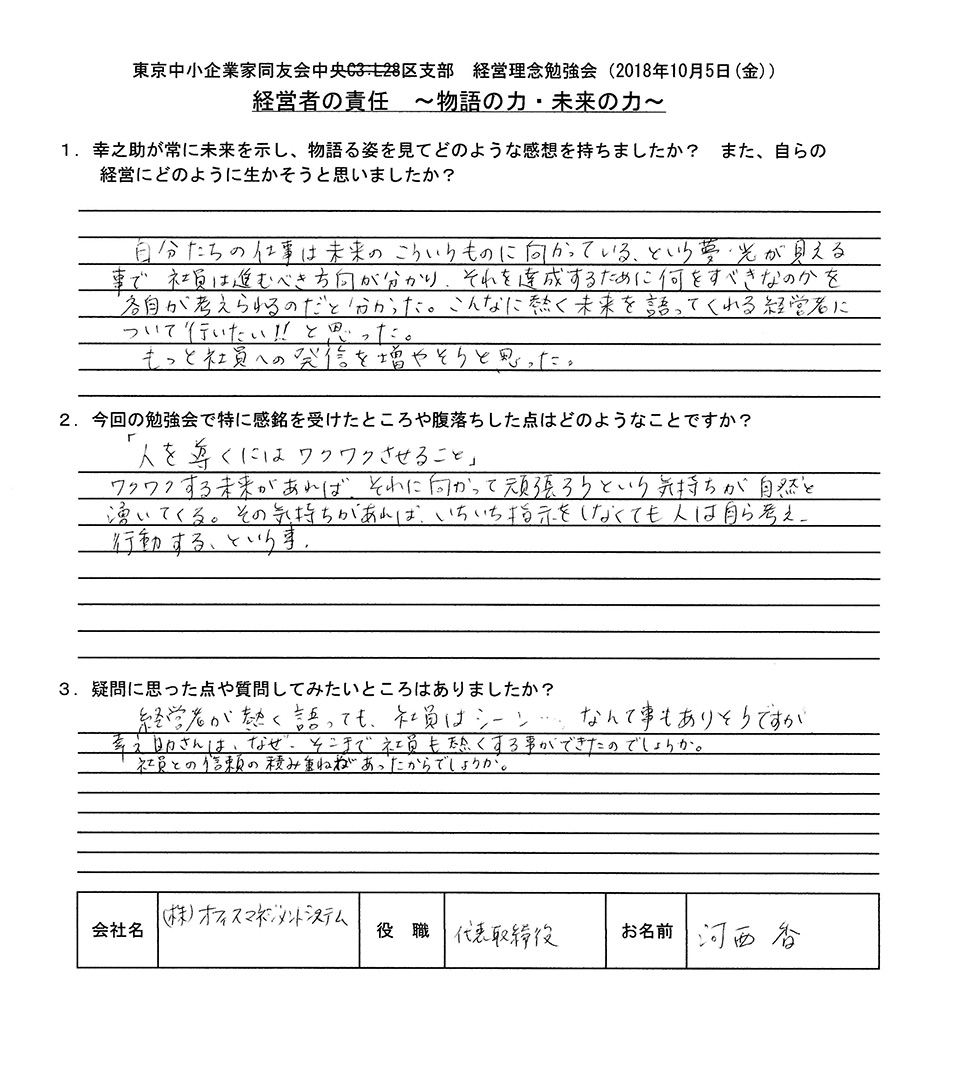 東京中小企業家同友会中央C3-L28区支部　経営理念勉強会（2018年10月5日(金)）
経営者の責任　～物語の力・未来の力～
１．幸之助が常に未来を示し、物語る姿を見てどのような感想を持ちましたか？　また、自らの
経営にどのように生かそうと思いましたか？
自分たちの仕事は未来のこういうものに向かっている、という夢・光が見える
事で 社員は進むべき方向が分かり、それを達成するために何をすべきなのかを
各自が考えられるのだと分かった。こんなに熱く未来を語ってくれる経営者に
ついて行いたい!! と思った。
もっと社員への発信を増やそうと思った。
２．今回の勉強会で特に感銘を受けたところや腹落ちした点はどのようなことですか？
「人を導くにはワクワクさせること」
ワクワクする未来があれば、それに向かって頑張ろうという気持ちが自然と
湧いてくる。その気持ちがあれば、いちいち指示をしなくても人は自ら考え、
行動する、という事。
３．疑問に思った点や質問してみたいところはありましたか？
経営者が熱く語っても、社員はシーン… なんて事もありそうですが
幸之助さんは、なぜ、そこまで社員も熱くする事ができたのでしょうか。
社員との信頼の積み重ねがあったからでしょうか。
会社名 (株)オフィスマネジメントシステム 役　職 代表取締役 お名前 河西 香